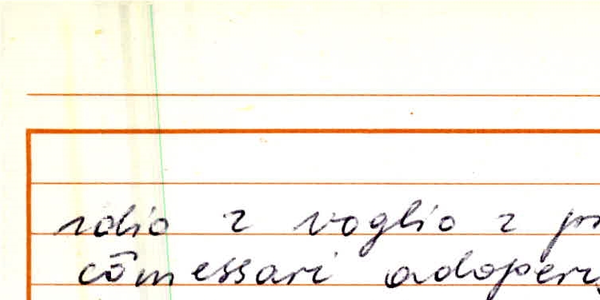 rdio z voglio z pr
cōmessari adoperi